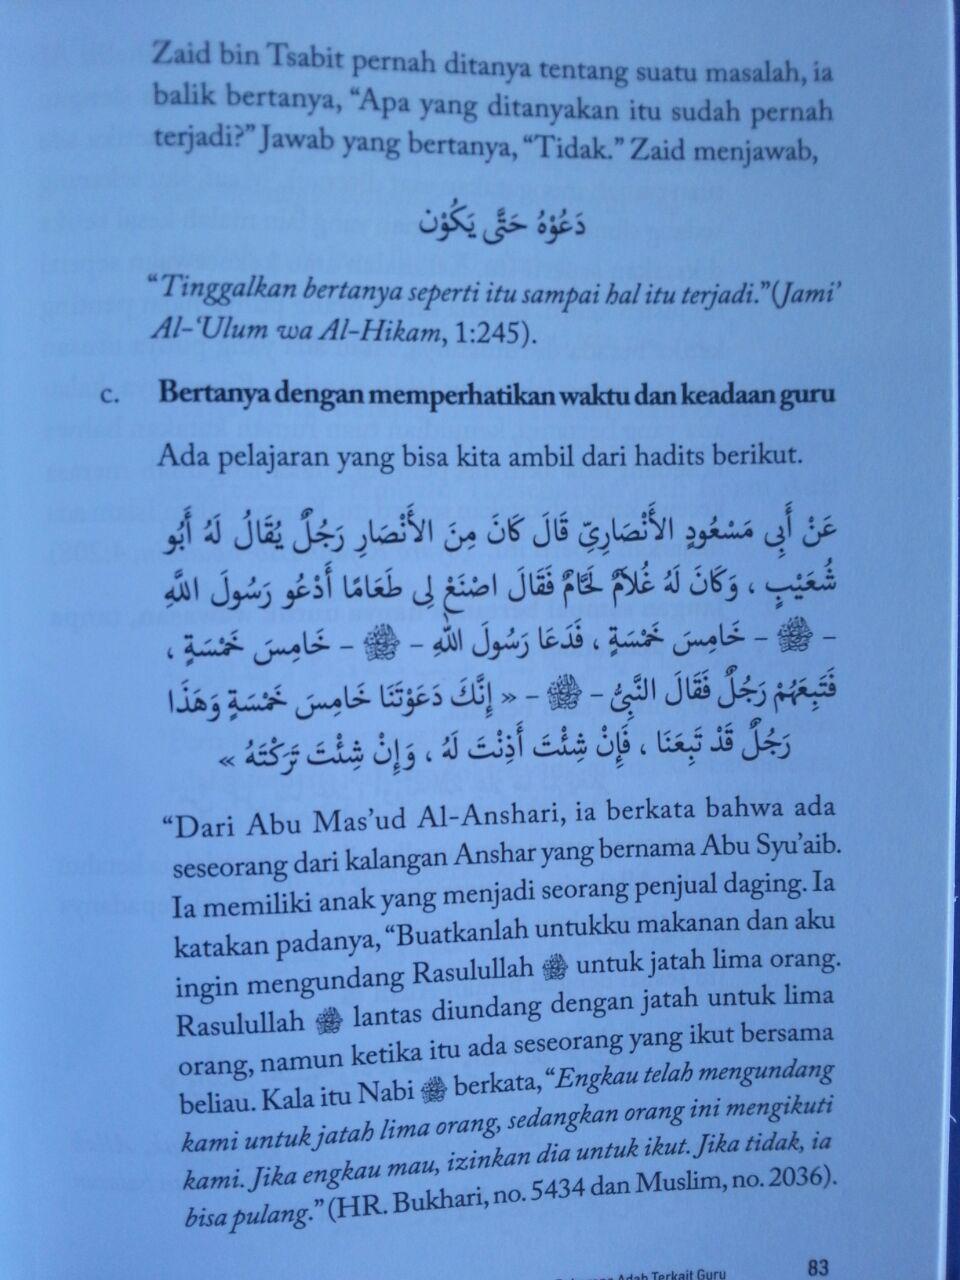 Zaid bin Tsabit pernah ditanya tentang suatu masalah, ia
balik bertanya, “Apa yang ditanyakan itu sudah pernah
terjadi?” Jawab yang bertanya, “Tidak.” Zaid menjawab,
دَعُوْهُ حَتَّى يَكُوْن
“Tinggalkan bertanya seperti itu sampai hal itu terjadi.”(Jami’
Al-‘Ulum wa Al-Hikam, 1:245).
c. Bertanya dengan memperhatikan waktu dan keadaan guru
Ada pelajaran yang bisa kita ambil dari hadits berikut.
عَنْ أَبِى مَسْعُودٍ الأَنْصَارِىِّ قَالَ كَانَ مِنَ الأَنْصَارِ رَجُلٌ يُقَالُ لَهُ أَبُو
شُعَيْبٍ ، وَكَانَ لَهُ غُلاَمٌ لَحَّامٌ فَقَالَ اصْنَعْ لِى طَعَامًا أَدْعُو رَسُولَ اللَّهِ
– ﷺ – خَامِسَ خَمْسَةٍ ، فَدَعَا رَسُولَ اللَّهِ – ﷺ – خَامِسَ خَمْسَةٍ ،
فَتَبِعَهُمْ رَجُلٌ فَقَالَ النَّبِىُّ – ﷺ – « إِنَّكَ دَعَوْتَنَا خَامِسَ خَمْسَةٍ وَهَذَا
رَجُلٌ قَدْ تَبِعَنَا ، فَإِنْ شِئْتَ أَذِنْتَ لَهُ ، وَإِنْ شِئْتَ تَرَكْتَهُ »
“Dari Abu Mas’ud Al-Anshari, ia berkata bahwa ada
seseorang dari kalangan Anshar yang bernama Abu Syu’aib.
Ia memiliki anak yang menjadi seorang penjual daging. Ia
katakan padanya, “Buatkanlah untukku makanan dan aku
ingin mengundang Rasulullah ﷺ untuk jatah lima orang.
Rasulullah ﷺ lantas diundang dengan jatah untuk lima
orang, namun ketika itu ada seseorang yang ikut bersama
beliau. Kala itu Nabi ﷺ berkata, “Engkau telah mengundang
kami untuk jatah lima orang, sedangkan orang ini mengikuti
kami. Jika engkau mau, izinkan dia untuk ikut. Jika tidak, ia
bisa pulang.” (HR. Bukhari, no. 5434 dan Muslim, no. 2036).
Adab Terkait Guru 83